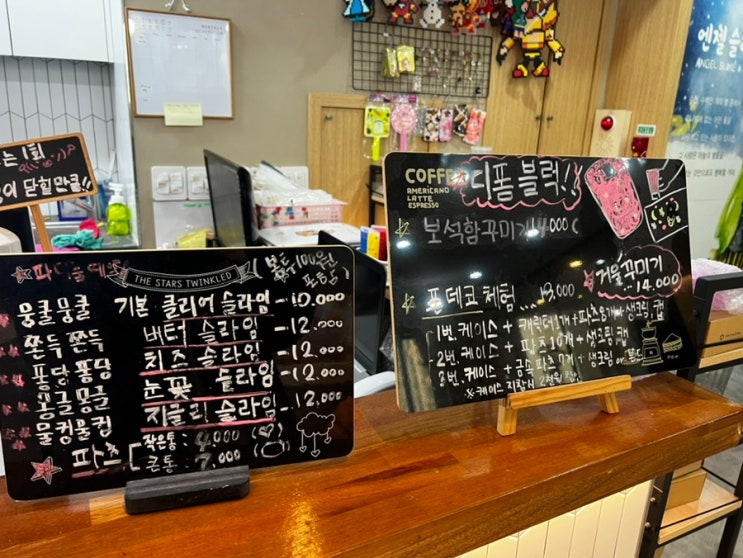 는 1회
닫힐만큼!!
THE STARS TWINKLED
봉투100원
포함
뭉쿨뭉쿨 기본 클리어 슬라임 - 10.000
쫀득쫀득 버터 슬라임 - 12.000
퐁당퐁당 치즈 슬라임 - 12.000
몽글몽글 눈꽃 슬라임 - 12.000
물컹물컹 지글리 슬라임 - 12.000
파츠 [ 작은통 : 4.000
큰통 : 7.000
COFFEE
AMERICANO
LATTE
ESPRESSO
디폼블럭!!
보석함꾸미기 4000
거울꾸미기
- 14.000
폰데코 체험 ... 18.000
1번. 케이스 + 캐릭터1개 + 파츠 + 생크림
2번. 케이스 + 파츠 10개 + 생크림
케이스 + 파츠 7개 + 생크림
※ 케이스 지참시 2천원
엔젤슬
ANGEL SLIME